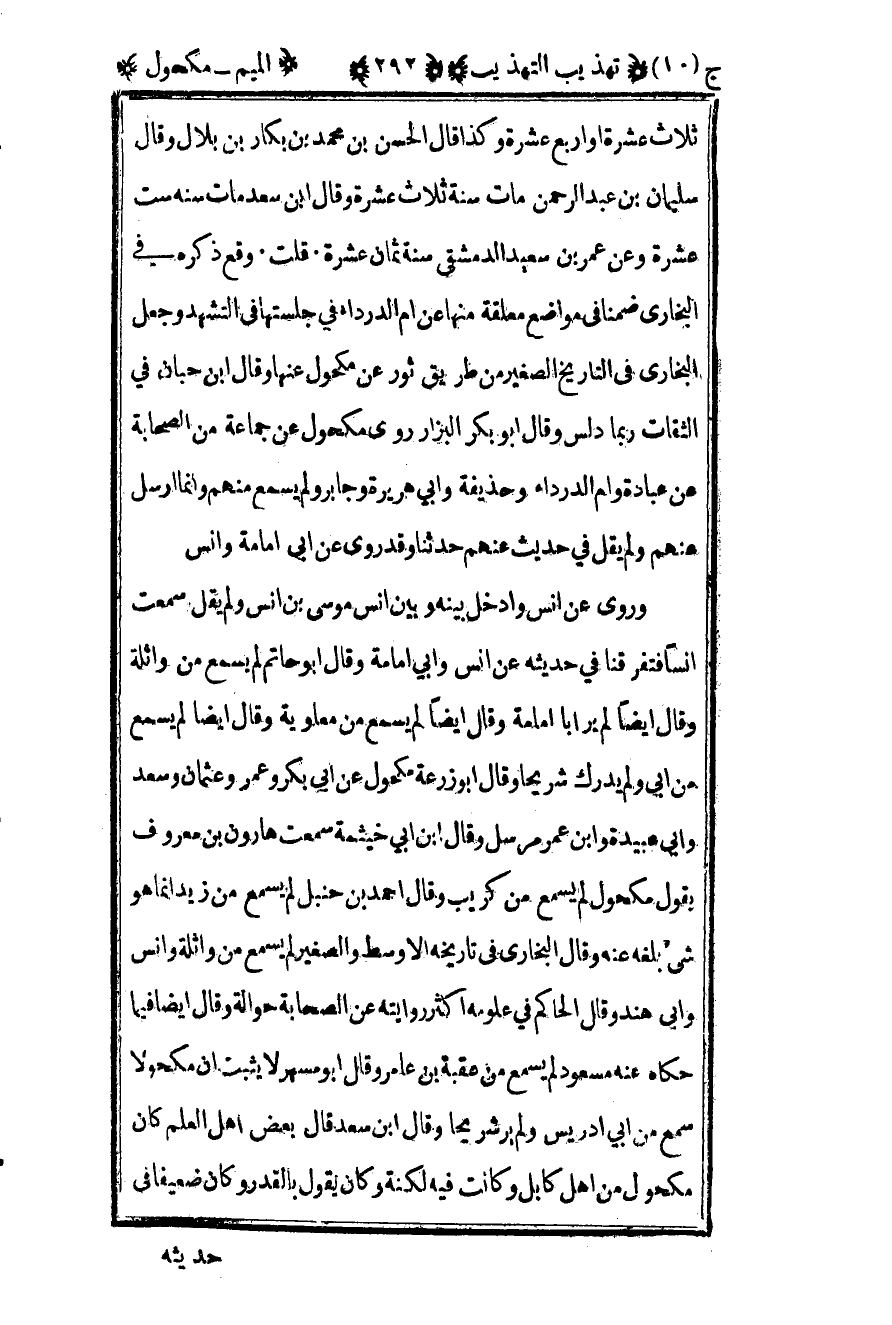 ج (١٠) تهذيب التهذيب ٢٩٢ الميم ـ مكحول
ثلاث عشرة او اربع عشرة وكذا قال الحسن بن محمد بن بكار بن بلال وقال
سليمان بن عبد الرحمن مات سنة ثلاث عشرة وقال ابن سعد مات سنه ست
عشرة وعن عمر بن سعيد الدمشقي سنة ثمان عشرة · قلت · وقع ذكره في
البخارى ضمنا فى مواضع معلقة منها عن ام الدرداء في جلستها فى التشهد وجعل
البخارى فى التاريخ الصغير من طريق ثور عن مكحول عنها وقال ابن حبان في
الثقات ربما دلس وقال ابو بكر البزار روى مكحول عن جماعة من الصحابة
عن عبادة وام الدرداء وحذيفة وابي هريرة وجابر ولم يسمع منهم وانما ارسل
عنهم ولم يقل في حديث عنهم حدثنا وقد روى عن ابى امامة وانس
وروى عن انس وادخل بينه وبين انس موسى بن انس ولم يقل سمعت
انساً فتفرقنا في حديثه عن انس وابي امامة وقال ابو حاتم لم يسمع من واثلة
وقال ايضاً لم ير ابا امامة وقال ايضاً لم يسمع من معاوية وقال ايضا لم يسمع
من ابي ولم يدرك شريحا وقال ابو زرعة مكحول عن ابي بكر وعمر وعثمان وسعد
وابي عبيدة وابن عمر مرسل وقال ابن ابي خيثمة سمعت هارون بن معروف
يقول مكحول لم يسمع من كريب وقال احمد بن حنبل لم يسمع من زيد انما هو
شئ بلغه عنه وقال البخارى فى تاريخه الاوسط والصغير لم يسمع من واثلة وانس
وابى هند وقال الحاكم في علومه اكثر روايته عن الصحابة حوالة وقال ايضا فيما
حكاه عنه مسعود لم يسمع من عقبة بن عامر وقال ابو مسهر لا يثبت ان مكحولا
سمع من ابي ادريس ولم ير شريحا وقال ابن سعد قال بعض اهل العلم كان
مكحول من اهل كابل وكانت فيه لكنة وكان يقول بالقدر وكان ضعيفا فى
حديثه